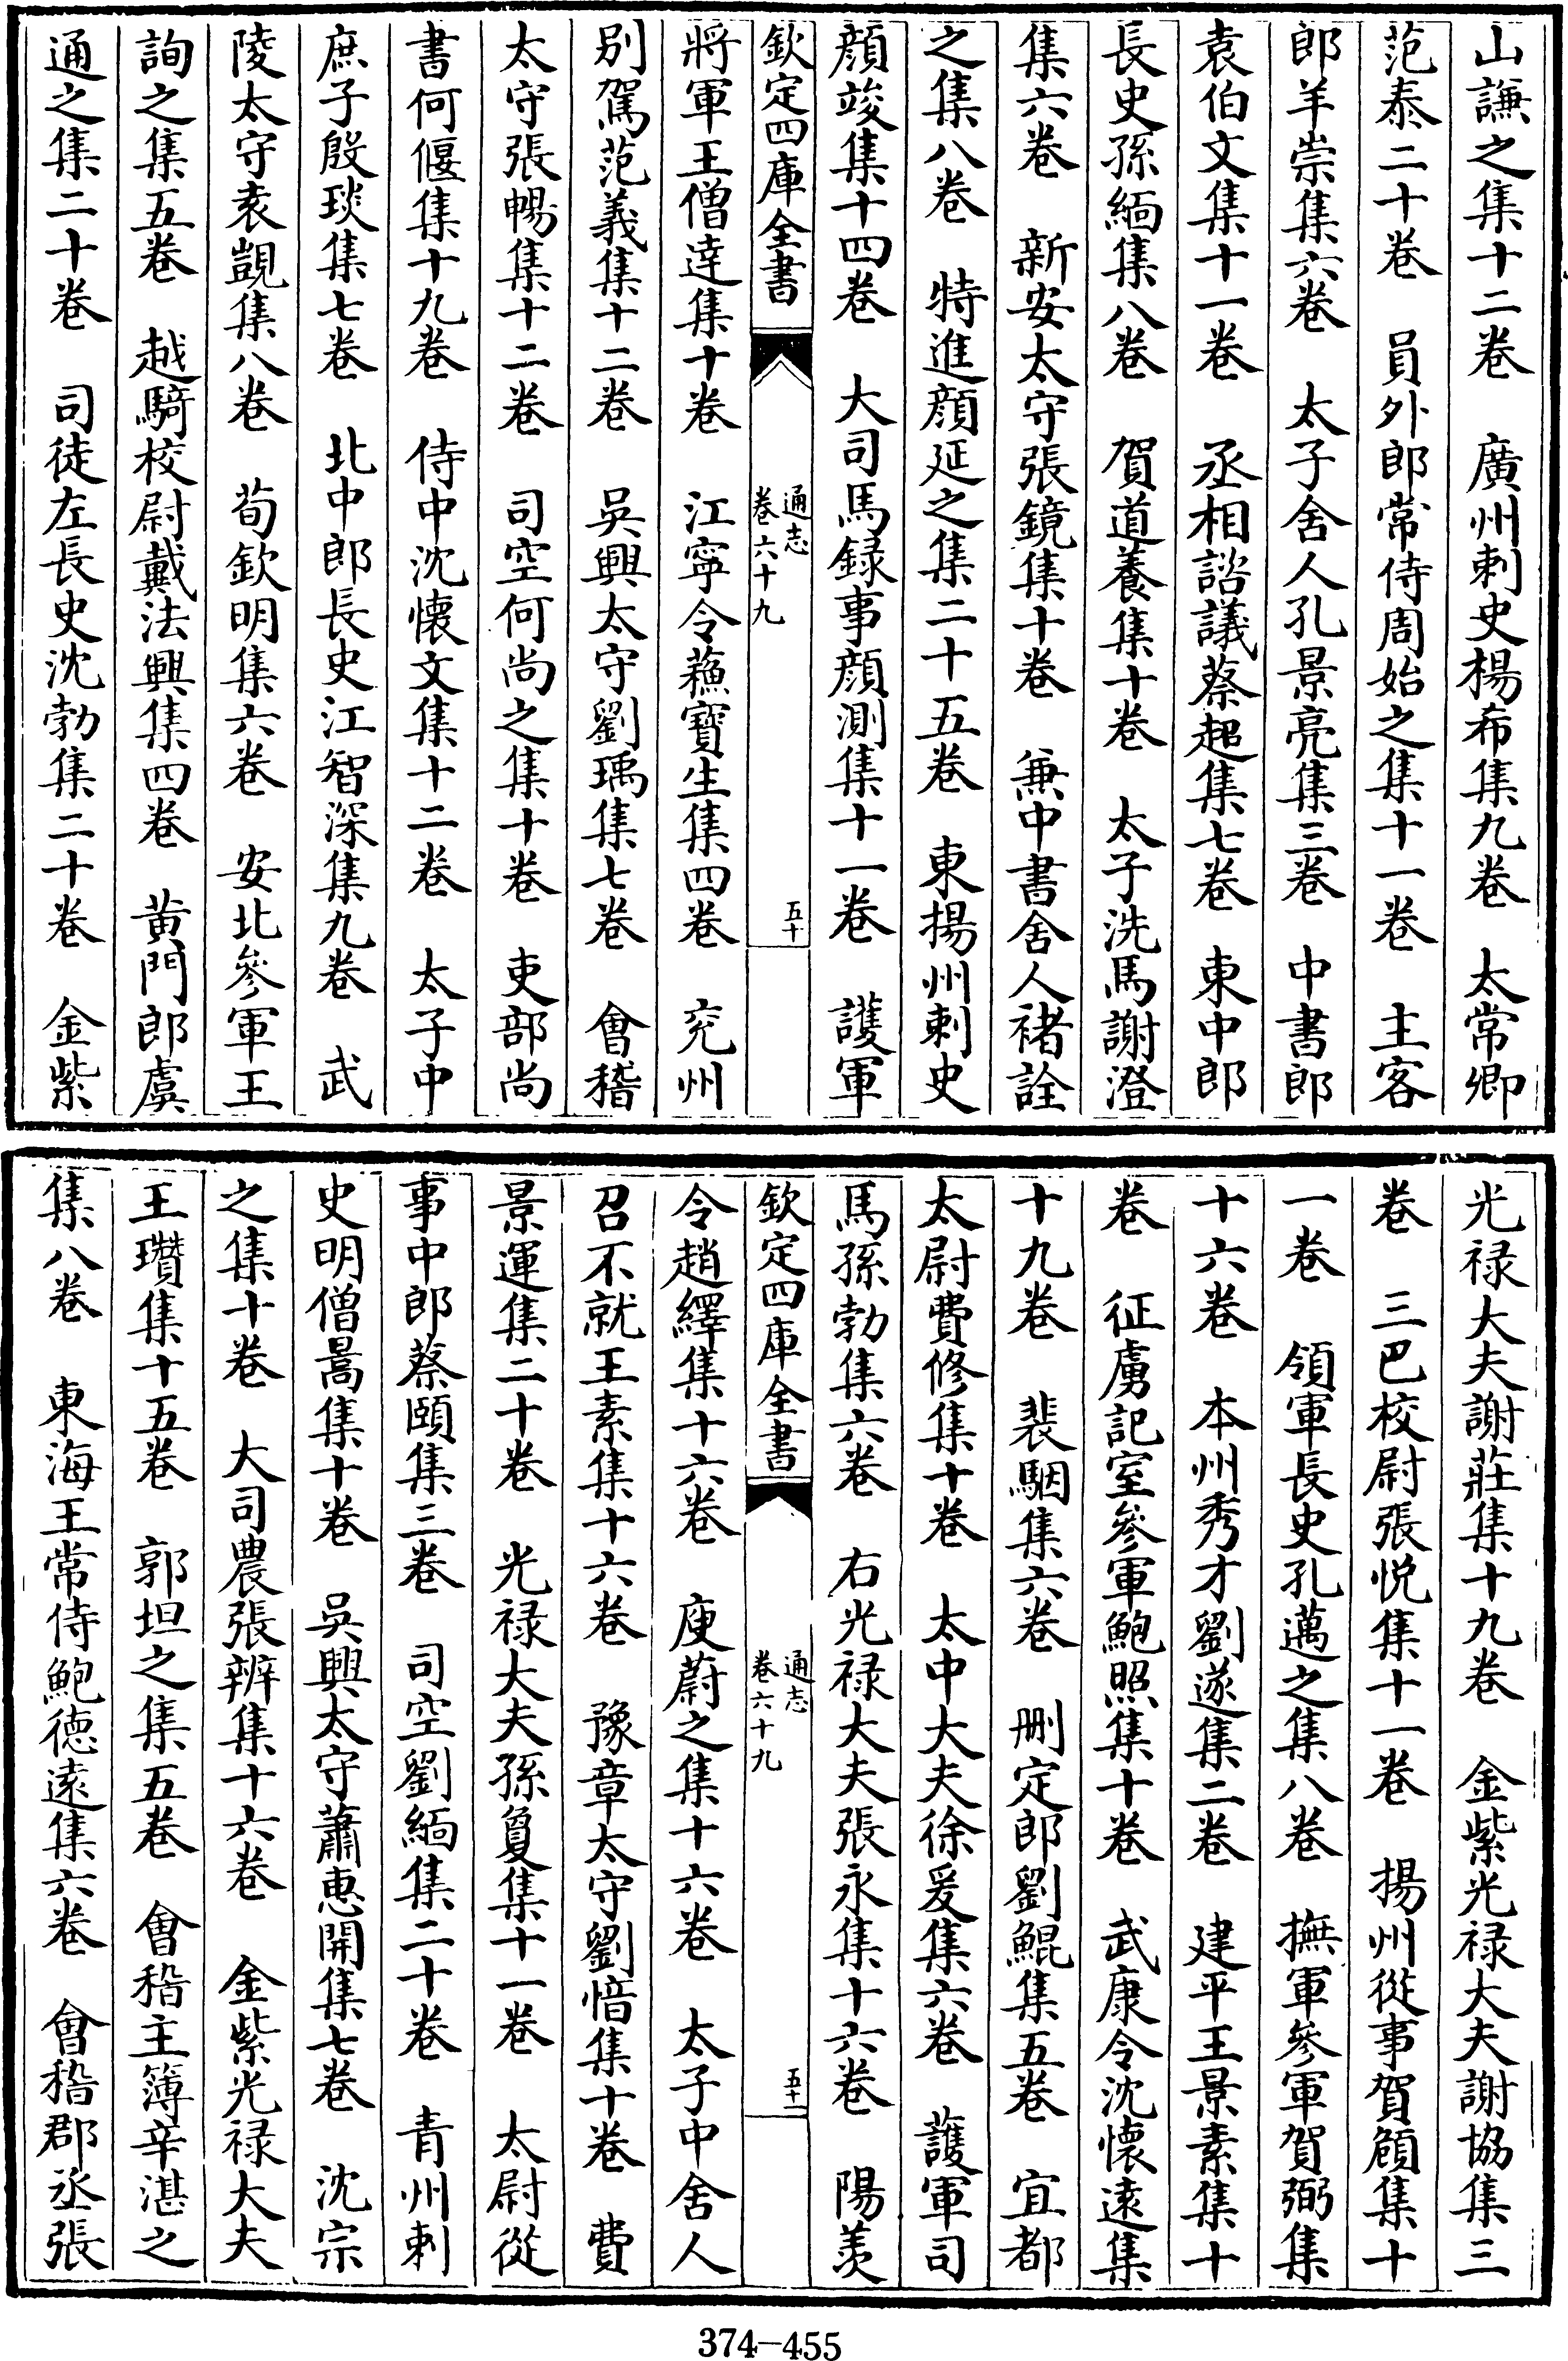 山謙之集十二卷　廣州刺史楊希集九卷　太常卿
范泰二十卷　員外郎常侍周始之集十一卷　主客
郎羊崇集六卷　太子舍人孔景亮集三卷　中書郎
袁伯文集十一卷　丞相諮議蔡超集七卷　東中郎
長史孫緬集八卷　賀道養集十卷　太子洗馬謝澄
集六卷　新安太守張鏡集十卷　兼中書舍人褚詮
之集八卷　特進顔延之集二十五卷　東揚州刺史
顔竣集十四卷　大司馬録事顔測集十一卷　護軍
欽定四庫全書　通志卷六十九　五十
將軍王僧逹集十卷　江寧令蘓寶生集四卷　兖州
别駕范義集十二卷　吳興太守劉瑀集七卷　會稽
太守張暢集十二卷　司空何尚之集十卷　吏部尚
書何偃集十九卷　侍中沈懐文集十二卷　太子中
庶子殷琰集七卷　北中郎長史江智深集九卷　武
陵太守袁覬集八卷　荀欽明集六卷　安北參軍王
詢之集五卷　越騎校尉戴法興集四卷　黄門郎虞
通之集二十卷　司徒左長史沈勃集二十卷　金紫
光禄大夫謝莊集十九卷　金紫光禄大夫謝協集三
卷　三巴校尉張悦集十一卷　揚州從事賀頠集十
一卷　領軍長史孔邁之集八卷　撫軍參軍賀弼集
十六卷　本州秀才劉遂集二卷　建平王景素集十
卷　征虜記室參軍鮑照集十卷　武康令沈懐遠集
十九卷　裴駰集六卷　删定郎劉鯤集五卷　宜都
太尉費修集十卷　太中大夫徐爰集六卷　護軍司
馬孫勃集六卷　右光禄大夫張永集十六卷　陽羨
欽定四庫全書　通志卷六十九　五十一
令趙繹集十六卷　庾蔚之集十六卷　太子中舍人
召不就王素集十六卷　豫章太守劉愔集十卷　費
景運集二十卷　光禄大夫孫夐集十一卷　太尉從
事中郎蔡頤集三卷　司空劉緬集二十卷　青州刺
史明僧暠集十卷　吳興太守蕭惠開集七卷　沈宗
之集十卷　大司農張辨集十六卷　金紫光禄大夫
王瓚集十五卷　郭坦之集五卷　會稽主簿辛湛之
集八卷　東海王常侍鮑德逺集六卷　會稽郡丞張
374-455